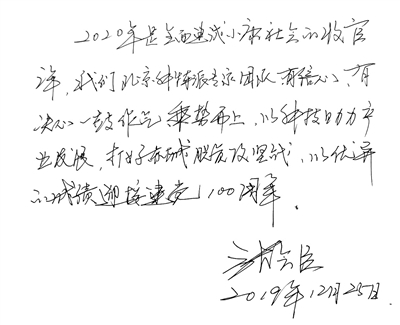 2020年是全面建成小康社会的收官
年,我们北京科特派专家团队有信心、有
决心一鼓作气 乘势而上,以科技助力产
业发展,打好赤城脱贫攻坚战,以优异
的成绩迎接建党100周年.
2019年12月25日.